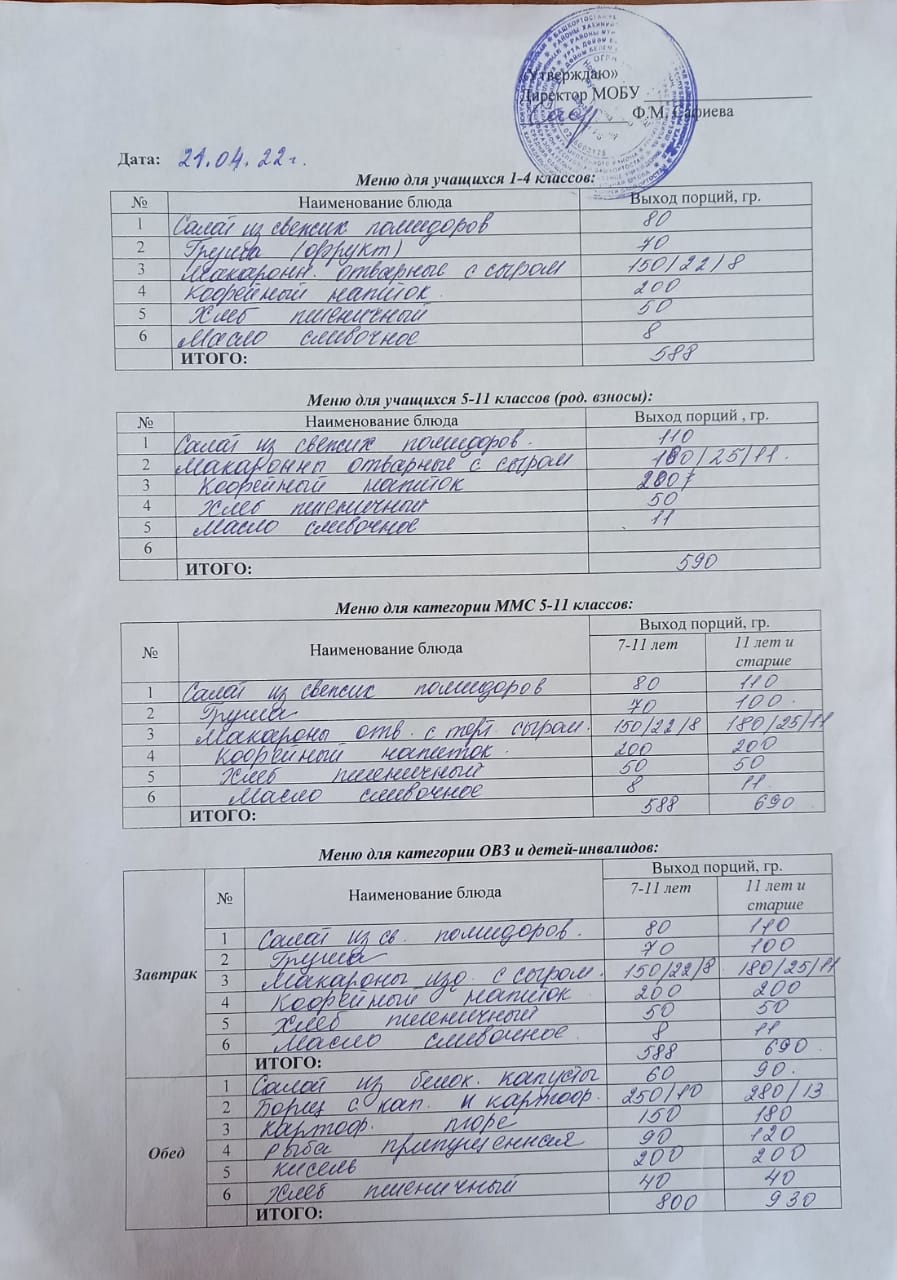 «Утверждаю»
Директор МОБУ
Ф.М. Сафиева
Дата: 21.04.22 г.
Меню для учащихся 1-4 классов:
№ Наименование блюда Выход порций, гр.
1 Салат из свежих помидоров 80
2 Груша (фрукт) 70
3 Макаронн. отварные с сыром 150/22/8
4 Кофейный напиток 200
5 Хлеб пшеничный 50
6 Масло сливочное 8
ИТОГО: 588
Меню для учащихся 5-11 классов (род. взносы):
№ Наименование блюда Выход порций , гр.
1 Салат из свежих помидоров. 110
2 Макаронны отварные с сыром 180/25/11.
3 Кофейный напиток 200
4 Хлеб пшеничный 50
5 Масло сливочное 11
6
ИТОГО: 590
Меню для категории ММС 5-11 классов:
№ Наименование блюда Выход порций, гр.
7-11 лет 11 лет и старше
1 Салат из свежих помидоров 80 110
2 Груша 70 100.
3 Макароны отв. с терт. сыром. 150/22/8 180/25/11
4 Кофейный напиток. 200 200
5 Хлеб пшеничный 50 50
6 Масло сливочное 8 11.
ИТОГО: 588 690
Меню для категории ОВЗ и детей-инвалидов:
№ Наименование блюда Выход порций, гр.
7-11 лет 11 лет и старше
Завтрак
1 Салат из св. помидоров. 80 110
2 Груша 70 100
3 Макароны изд. с сыром. 150/22/8 180/25/11
4 Кофейный напиток 200 200
5 Хлеб пшеничный 50 50
6 Масло сливочное 8 11
ИТОГО: 588 690.
Обед
1 Салат из белок. капусты 60 90.
2 Борщ с кап. и картоф. 250/10 280/13
3 Картоф. пюре 150 180
4 Рыба припущенная 90 120
5 кисель 200 200
6 Хлеб пшеничный 40 40
ИТОГО: 800 930